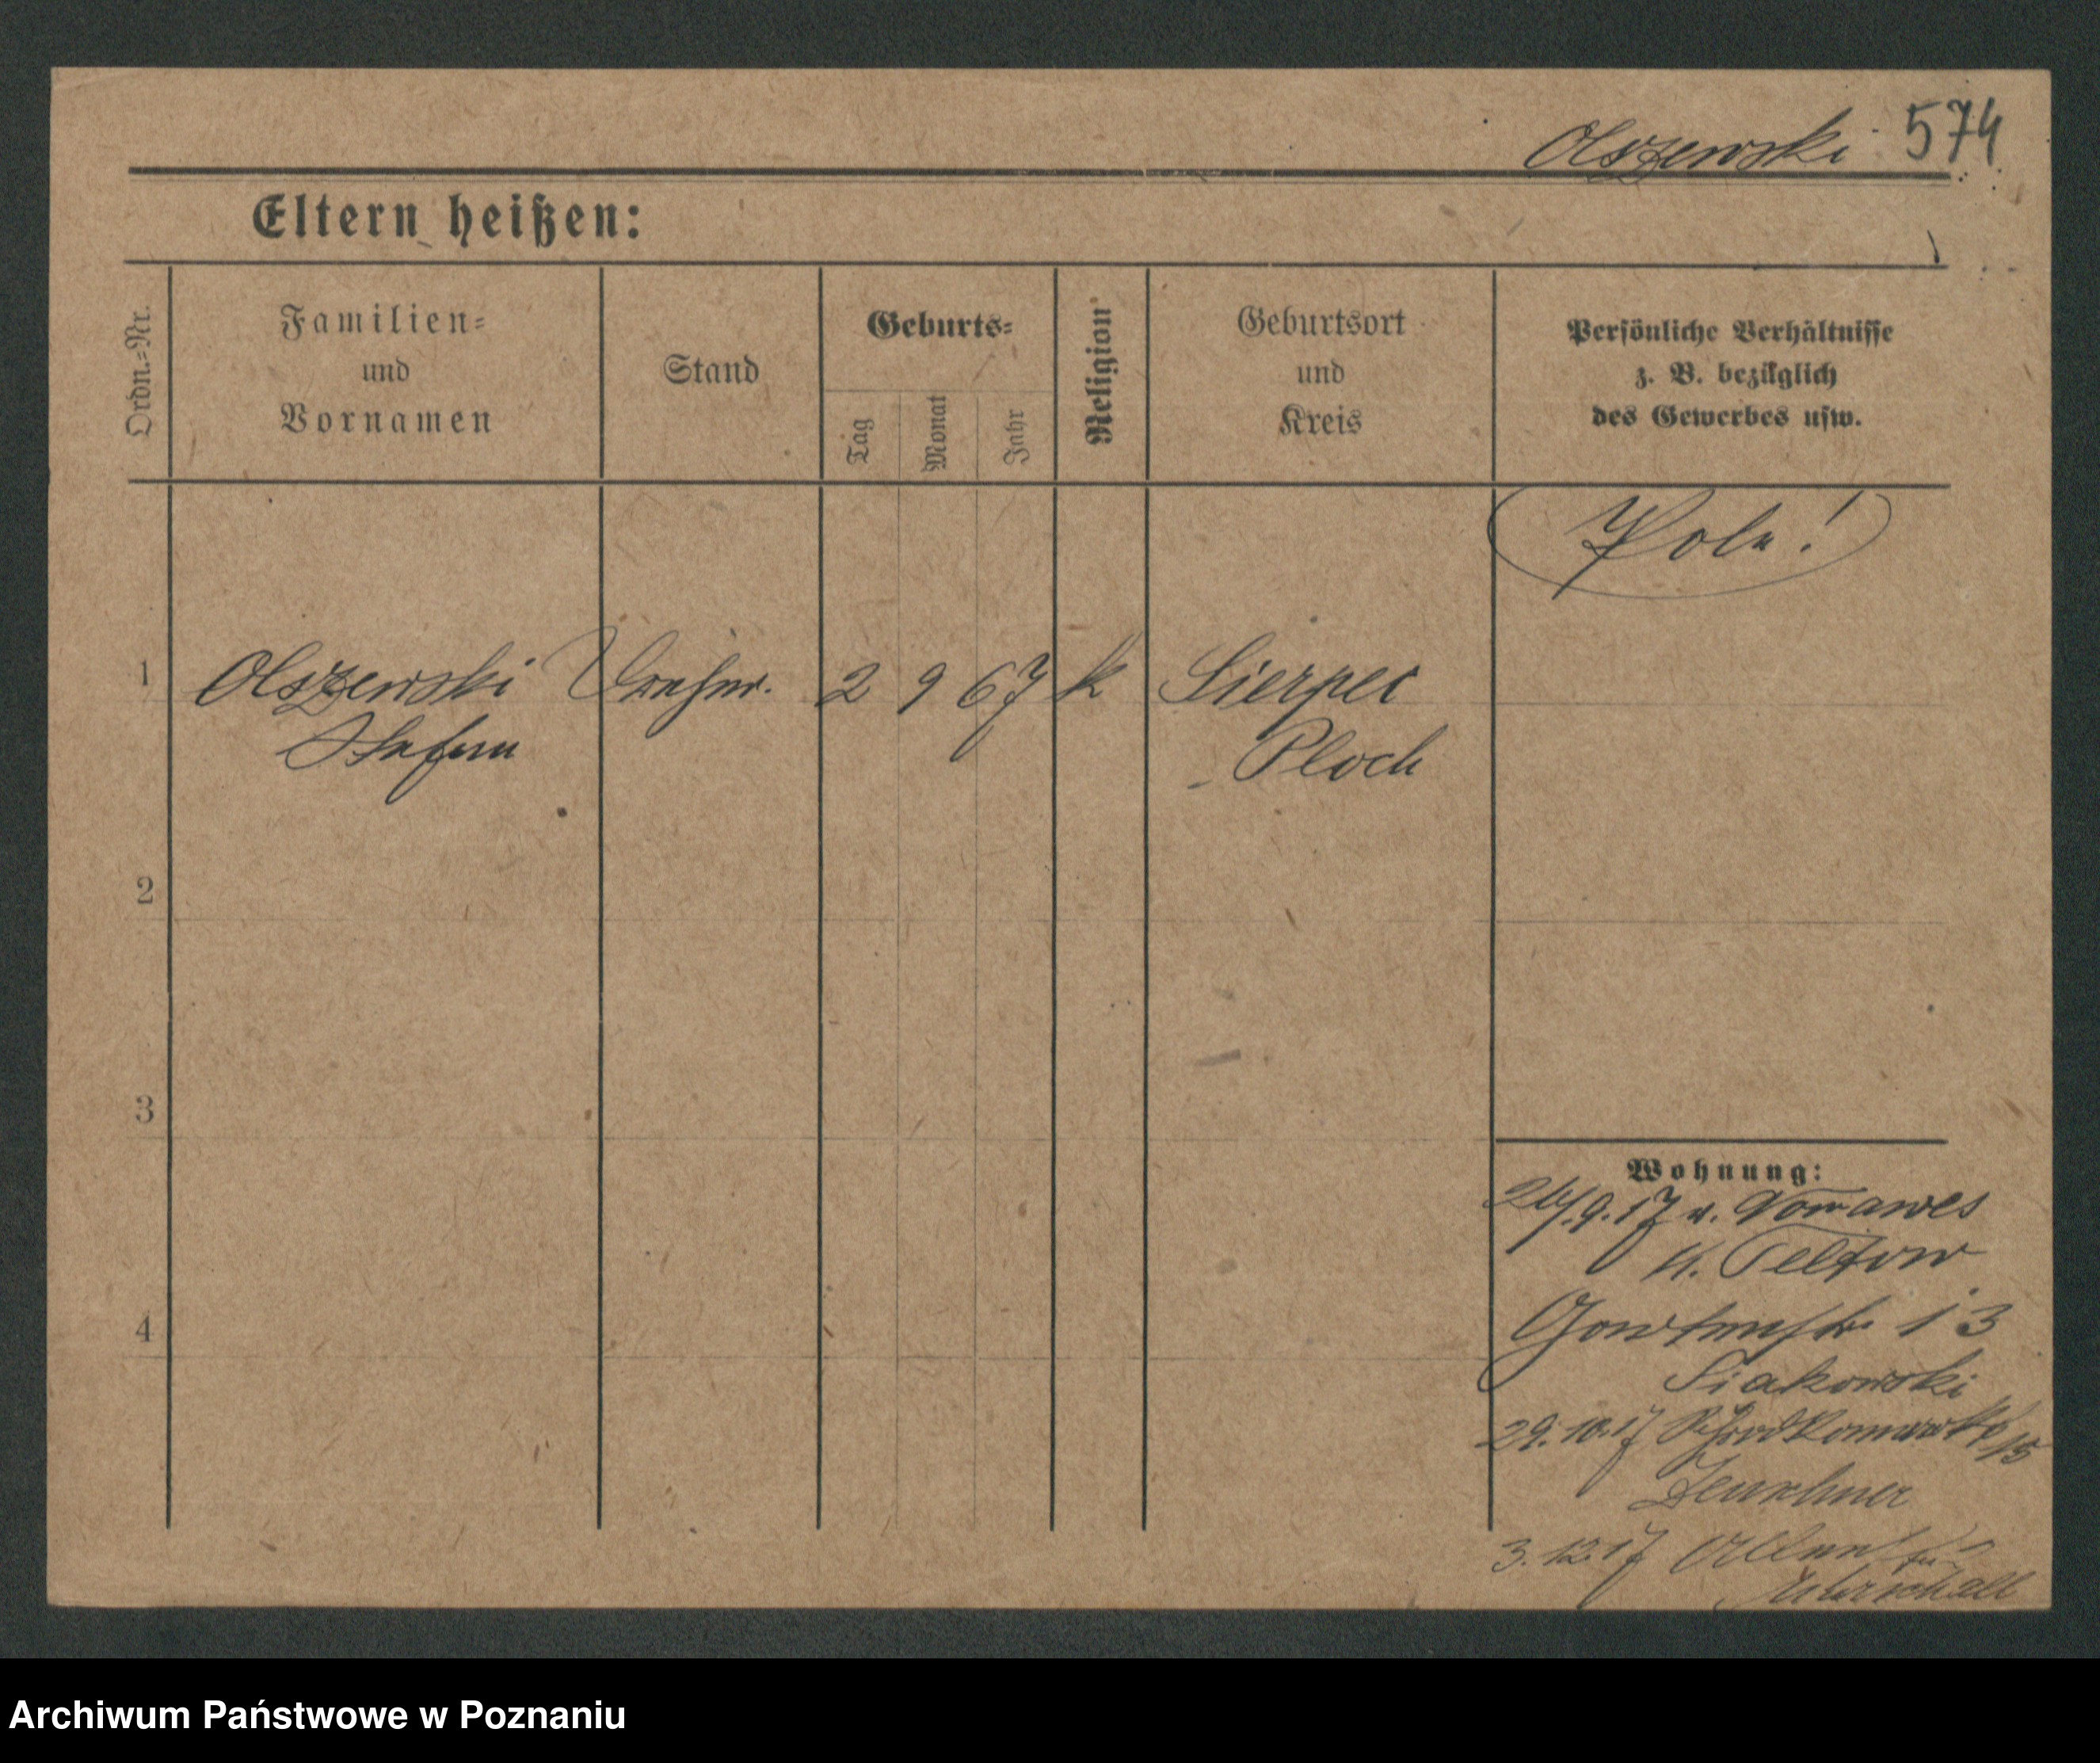 Olszewski 574
Eltern heißen:
Ordn.=Nr.
Familien=
und
Vornamen
Stand
Geburts=
Tag
Monat
Jahr
Religion
Geburtsort
und
Kreis
Persönliche Verhältnisse
z. B. bezüglich
des Gewerbes usw.
Pole!
1 Olszewski 2 9 67 k Sierpec
Stefan Plock
2
3
4
Wohnung:
26/.9.17 v. Nowawes
K. Teltow
13
Siakowski
29.10.17
3.12.17
Archiwum Państwowe w Poznaniu